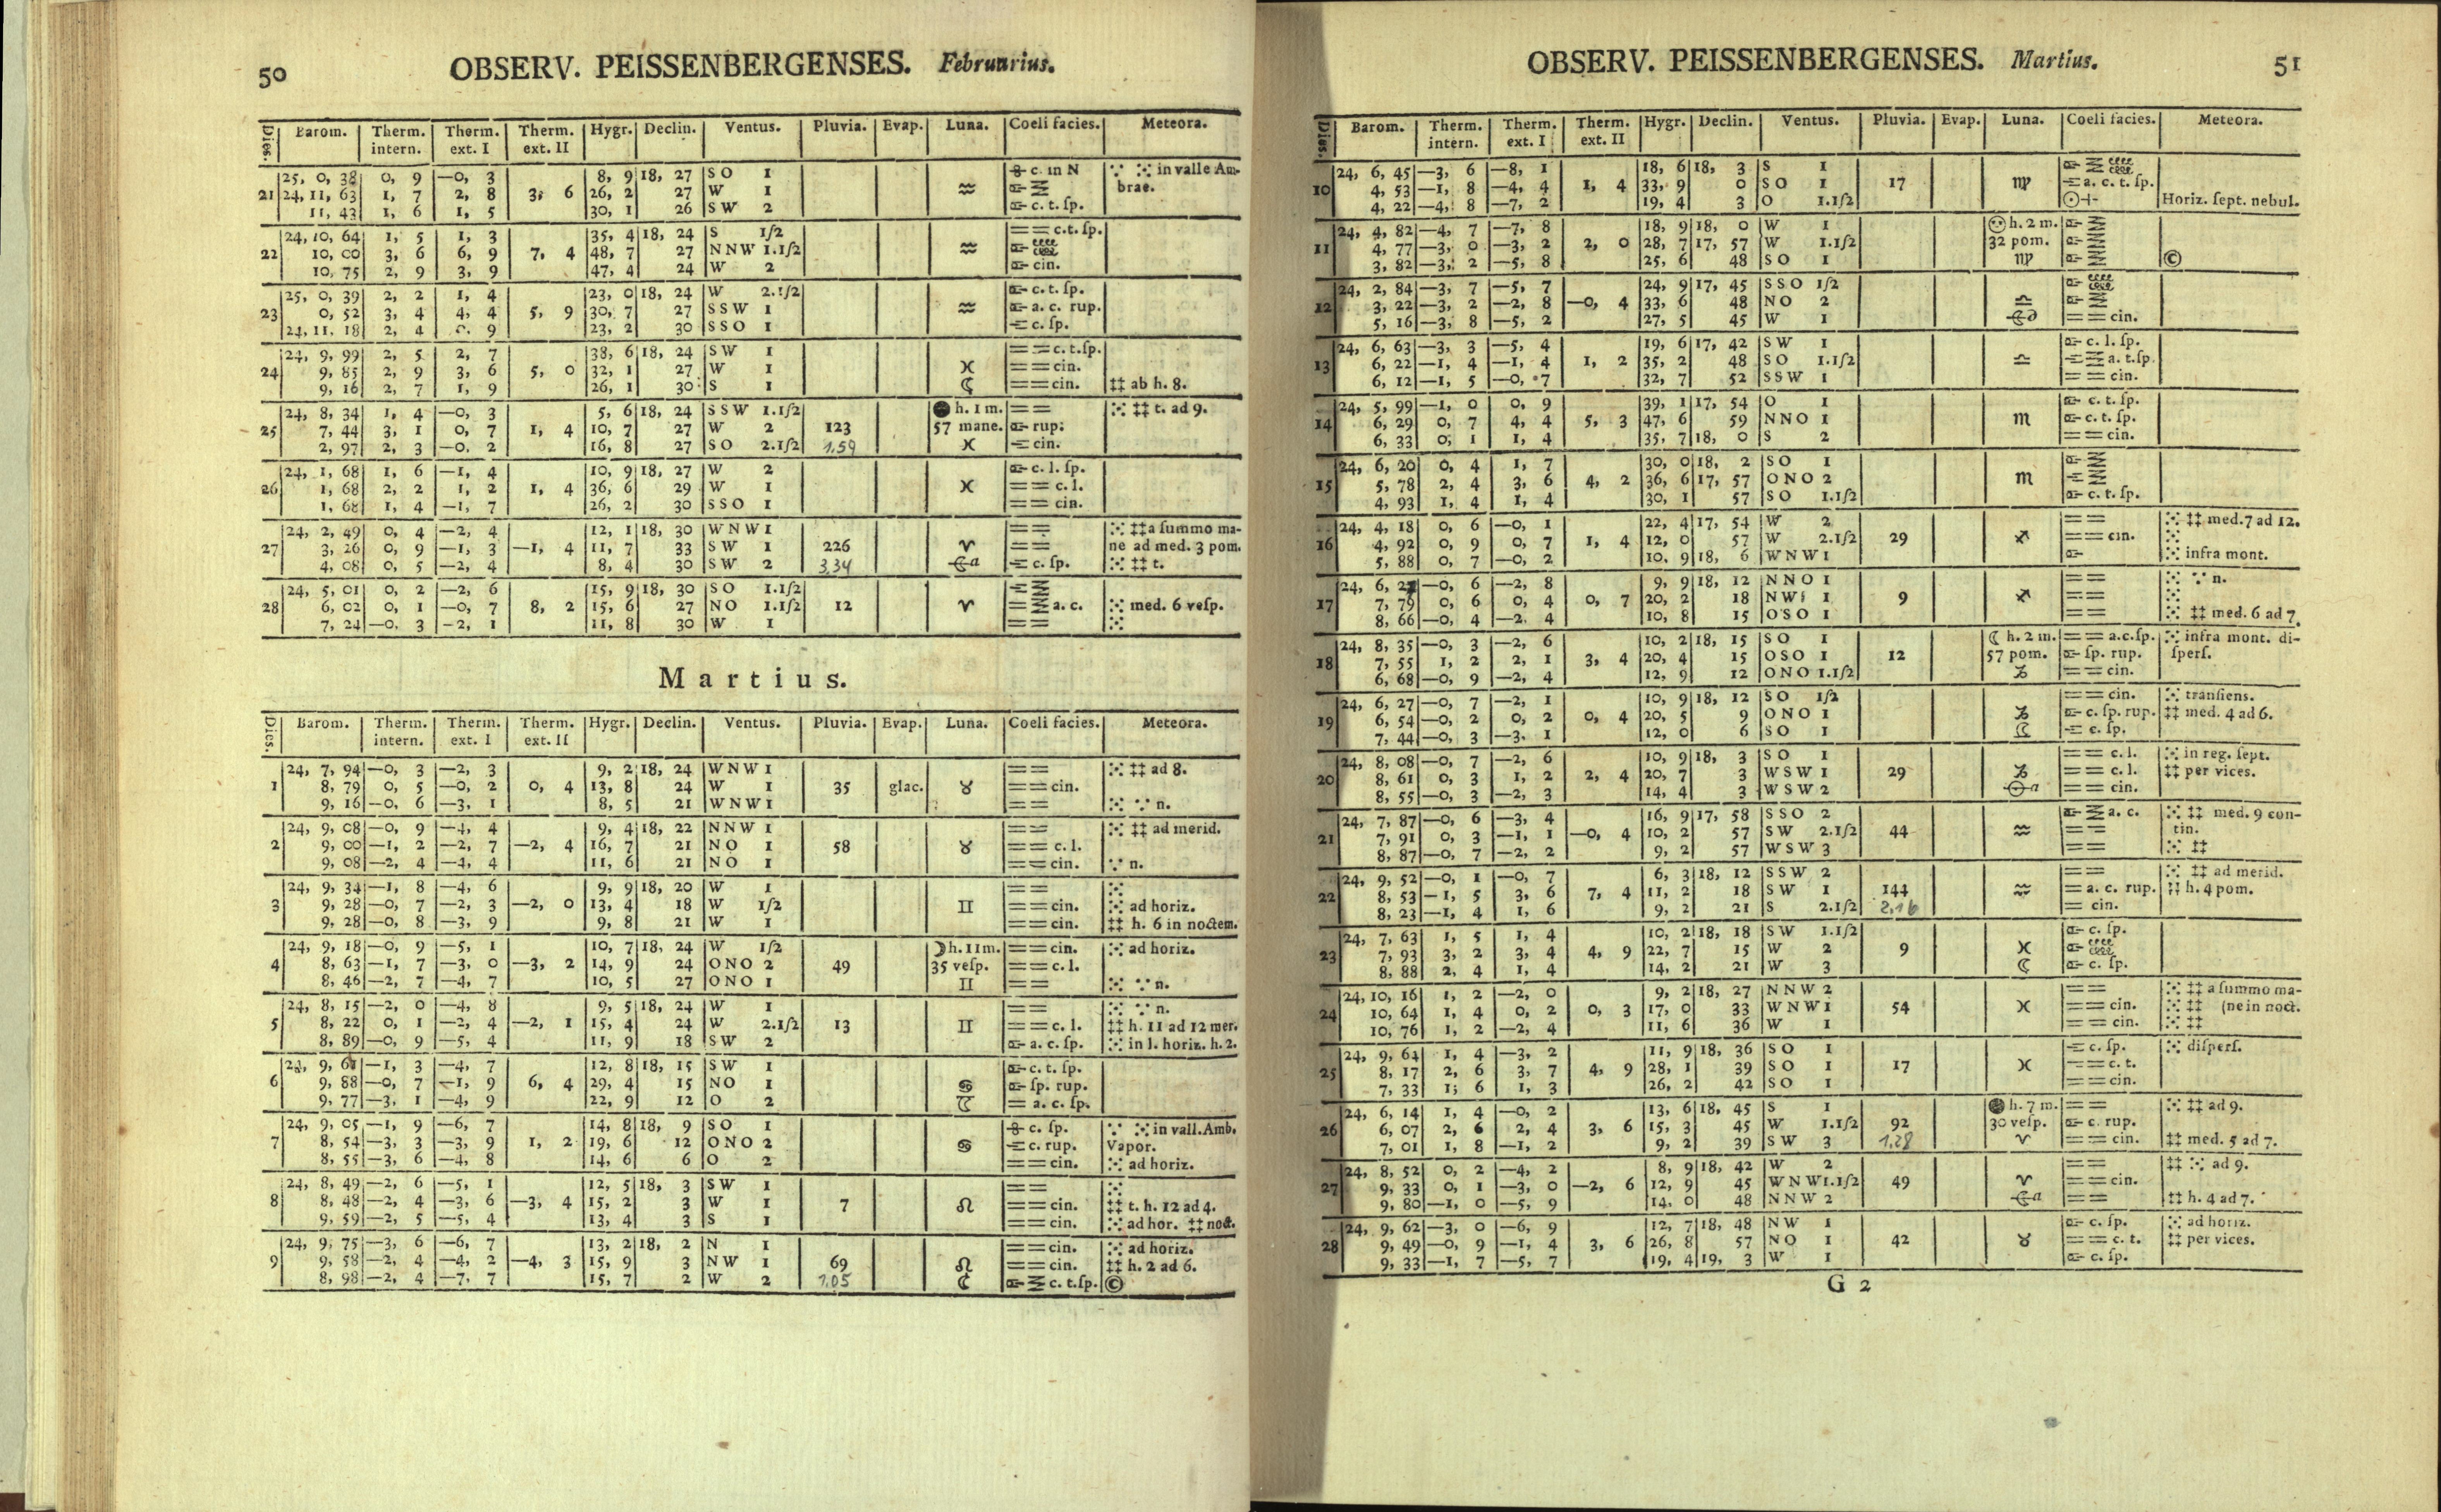 50 OBSERV. PEISSENBERGENSES. Februarius.
Dies. Barom. Therm. intern. Therm. ext. I Therm. ext. II Hygr. Declin. Ventus. Pluvia. Evap. Luna. Coeli facies. Meteora.
25, 0, 38 0, 9 —0, 3 8, 9 18, 27 SO 1 c. in N in valle Am-
21 24, 11, 63 1, 7 2, 8 3, 6 26, 2 27 W 1 ♒ brae.
11, 43 1, 6 1, 5 30, 1 26 SW 2 c. t. ſp.
24, 10, 64 1, 5 1, 3 35, 4 18, 24 S 1ſ2 == c. t. ſp.
22 10, 00 3, 6 6, 9 7, 4 48, 7 27 NNW 1.1ſ2 ♒
10, 75 2, 9 3, 9 47, 4 24 W 2 cin.
25, 0, 39 2, 2 1, 4 23, 0 18, 24 W 2.1ſ2 c. t. ſp.
23 0, 52 3, 4 4, 4 5, 9 30, 7 27 SSW 1 ♒ a. c. rup.
24, 11, 18 2, 4 0, 9 23, 2 30 SSO 1 c. ſp.
24, 9, 99 2, 5 2, 7 38, 6 18, 24 SW 1 == c. t. ſp.
24 9, 85 2, 9 3, 6 5, 0 32, 1 27 W 1 ♓ == cin.
9, 16 2, 7 1, 9 26, 1 30 S 1 ☾ == cin. ‡‡ ab h. 8.
24, 8, 34 1, 4 —0, 3 5, 6 18, 24 SSW 1.1ſ2 ● h. 1 m. == ⁙ ‡‡ t. ad 9.
25 7, 44 3, 1 0, 7 1, 4 10, 7 27 W 2 123 57 mane. rup:
2, 97 2, 3 —0, 2 16, 8 27 SO 2.1ſ2 1,59 ♓ cin.
24, 1, 68 1, 6 —1, 4 10, 9 18, 27 W 2 c. l. ſp.
26 1, 68 2, 2 1, 2 1, 4 36, 6 29 W 1 ♓ == c. l.
1, 68 1, 4 —1, 7 26, 2 30 SSO 1 == cin.
24, 2, 49 0, 4 —2, 4 12, 1 18, 30 WNW 1 == ⁙ ‡‡ a ſummo ma-
27 3, 26 0, 9 —1, 3 —1, 4 11, 7 33 SW 1 226 ♈ == ne ad med. 3 pom.
4, 08 0, 5 —2, 4 8, 4 30 SW 2 3,34 c. ſp. ⁙ ‡‡ t.
24, 5, 01 0, 2 —2, 6 15, 9 18, 30 SO 1.1ſ2
28 6, 02 0, 1 —0, 7 8, 2 15, 6 27 NO 1.1ſ2 12 ♈ a. c. ⁙ med. 6 veſp.
7, 24 —0, 3 —2, 1 11, 8 30 W 1 == ⁙
Martius.
Dies. Barom. Therm. intern. Therm. ext. I Therm. ext. II Hygr. Declin. Ventus. Pluvia. Evap. Luna. Coeli facies. Meteora.
24, 7, 94 —0, 3 —2, 3 9, 2 18, 24 WNW 1 == ⁙ ‡‡ ad 8.
1 8, 79 0, 5 —0, 2 0, 4 13, 8 24 W 1 35 glac. ♉ == cin.
9, 16 —0, 6 —3, 1 8, 5 21 WNW 1 == ⁙ n.
24, 9, 08 —0, 9 —4, 4 9, 4 18, 22 NNW 1 == ⁙ ‡‡ ad merid.
2 9, 00 —1, 2 —2, 7 —2, 4 16, 7 21 NO 1 58 ♉ == c. l.
9, 08 —2, 4 —4, 4 11, 6 21 NO 1 == cin. n.
24, 9, 34 —1, 8 —4, 6 9, 9 18, 20 W 1 == ⁙
3 9, 28 —0, 7 —2, 3 —2, 0 13, 4 18 W 1ſ2 ♊ == cin. ⁙ ad horiz.
9, 28 —0, 8 —3, 9 9, 8 21 W 1 == cin. ‡‡ h. 6 in noctem.
24, 9, 18 —0, 9 —5, 1 10, 7 18, 24 W 1ſ2 ☽ h. 11 m. == cin. ⁙ ad horiz.
4 8, 63 —1, 7 —3, 0 —3, 2 14, 9 24 ONO 2 49 35 veſp. == c. l.
8, 46 —2, 7 —4, 7 10, 5 27 ONO 1 ♊ == ⁙ n.
24, 8, 15 —2, 0 —4, 8 9, 5 18, 24 W 1 == ⁙ n.
5 8, 22 0, 1 —2, 4 —2, 1 15, 4 24 W 2.1ſ2 13 ♊ == c. l. ‡‡ h. 11 ad 12 mer.
8, 89 —0, 9 —5, 4 11, 9 18 SW 2 a. c. ſp. ⁙ in l. horiz. h. 2.
24, 9, 6 —1, 3 —4, 7 12, 8 18, 15 SW 1 c. t. ſp.
6 9, 88 —0, 7 —1, 9 6, 4 29, 4 15 NO 1 ♋ ſp. rup.
9, 77 —3, 1 —4, 9 22, 9 12 O 2 = a. c. ſp.
24, 9, 05 —1, 9 —6, 7 14, 8 18, 9 SO 1 c. ſp. in vall. Amb.
7 8, 54 —3, 3 —3, 9 1, 2 19, 6 12 ONO 2 ♋ c. rup. Vapor.
8, 55 —3, 6 —4, 8 14, 6 6 O 2 == cin. ⁙ ad horiz.
24, 8, 49 —2, 6 —5, 1 12, 5 18, 3 SW 1 == ⁙
8 8, 48 —2, 4 —3, 6 —3, 4 15, 2 3 W 1 7 ♌ == cin. ‡‡ t. h. 12 ad 4.
9, 59 —2, 5 —5, 4 13, 4 3 S 1 == cin. ⁙ ad hor. ‡‡ noct.
24, 9, 75 —3, 6 —6, 7 13, 2 18, 2 N 1 == cin. ⁙ ad horiz.
9 9, 58 —2, 4 —4, 2 —4, 3 15, 9 3 NW 1 69 ♌ == cin. ‡‡ h. 2 ad 6.
8, 98 —2, 4 —7, 7 15, 7 2 W 2 1,05 c. t. ſp. ©
OBSERV. PEISSENBERGENSES. Martius. 51
Dies. Barom. Therm. intern. Therm. ext. I Therm. ext. II Hygr. Declin. Ventus. Pluvia. Evap. Luna. Coeli facies. Meteora.
24, 6, 45 —3, 6 —8, 1 18, 6 18, 3 S 1
10 4, 53 —1, 8 —4, 4 1, 4 33, 9 0 SO 1 17 ♍ a. c. t. ſp.
4, 22 —4, 8 —7, 2 19, 4 3 O 1.1ſ2 Horiz. ſept. nebul.
24, 4, 82 —4, 7 —7, 8 18, 9 18, 0 W 1 h. 2 m.
11 4, 77 —3, 0 —3, 2 2, 0 28, 7 17, 57 W 1.1ſ2 32 pom.
3, 82 —3, 2 —5, 8 25, 6 48 SO 1 ♍ ©
24, 2, 84 —3, 7 —5, 7 24, 9 17, 45 SSO 1ſ2
12 3, 22 —3, 2 —2, 8 —0, 4 33, 6 48 NO 2 ♎
5, 16 —3, 8 —5, 2 27, 5 45 W 1 == cin.
24, 6, 63 —3, 3 —5, 4 19, 6 17, 42 SW 1 c. l. ſp.
13 6, 22 —1, 4 —1, 4 1, 2 35, 2 48 SO 1.1ſ2 ♎ a. t. ſp.
6, 12 —1, 5 —0, 7 32, 7 52 SSW 1 == cin.
24, 5, 99 —1, 0 0, 9 39, 1 17, 54 O 1 c. t. ſp.
14 6, 29 0, 7 4, 4 5, 3 47, 6 59 NNO 1 ♏ c. t. ſp.
6, 33 0, 1 1, 4 35, 7 18, 0 S 2 == cin.
24, 6, 20 0, 4 1, 7 30, 0 18, 2 SO 1
15 5, 78 2, 4 3, 6 4, 2 36, 6 17, 57 ONO 2 ♏
4, 93 1, 4 1, 4 30, 1 57 SO 1.1ſ2 c. t. ſp.
24, 4, 18 0, 6 —0, 1 22, 4 17, 54 W 2 == ⁙ ‡‡ med. 7 ad 12.
16 4, 92 0, 9 0, 7 1, 4 12, 0 57 W 2.1ſ2 29 ♐ == cin. ⁙
5, 88 0, 7 —0, 2 10, 9 18, 6 WNW 1 ⁙ infra mont.
24, 6, 2 —0, 6 —2, 8 9, 9 18, 12 NNO 1 == ⁙ n.
17 7, 79 0, 6 0, 4 0, 7 20, 2 18 NW 1 9 ♐ == ⁙
8, 66 —0, 4 —2, 4 10, 8 15 OSO 1 == ⁙ ‡‡ med. 6 ad 7.
24, 8, 35 —0, 3 —2, 6 10, 2 18, 15 SO 1 ☾ h. 2 m. == a. c. ſp. ⁙ infra mont. di-
18 7, 55 1, 2 2, 1 3, 4 20, 4 15 OSO 1 12 57 pom. ſp. rup. ſperſ.
6, 68 —0, 9 —2, 4 12, 9 12 ONO 1.1ſ2 ♑ == cin.
24, 6, 27 —0, 7 —2, 1 10, 9 18, 12 SO 1ſ2 == cin. ⁙ tranſiens.
19 6, 54 —0, 2 0, 2 0, 4 20, 5 9 ONO 1 ♑ c. ſp. rup. ‡‡ med. 4 ad 6.
7, 44 —0, 3 —3, 1 12, 0 6 SO 1 c. ſp.
24, 8, 08 —0, 7 —2, 6 10, 9 18, 3 SO 1 == c. l. ⁙ in reg. ſept.
20 8, 61 0, 3 1, 2 2, 4 20, 7 3 WSW 1 29 ♑ == c. l. ‡‡ per vices.
8, 55 —0, 3 —2, 3 14, 4 3 WSW 2 == cin.
24, 7, 87 —0, 6 —3, 4 16, 9 17, 58 SSO 2 a. c. ⁙ ‡‡ med. 9 con-
21 7, 91 0, 3 —1, 1 —0, 4 10, 2 57 SW 2.1ſ2 44 ♒ == tin.
8, 87 —0, 7 —2, 2 9, 2 57 WSW 3 == ⁙ ‡‡
24, 9, 52 —0, 1 —0, 7 6, 3 18, 12 SSW 2 == ⁙ ‡‡ ad merid.
22 8, 53 —1, 5 3, 6 7, 4 11, 2 18 SW 1 144 ♒ = a. c. rup. ‡‡ h. 4 pom.
8, 23 —1, 4 1, 6 9, 2 21 S 2.1ſ2 2,16 = cin.
24, 7, 63 1, 5 1, 4 10, 2 18, 18 SW 1.1ſ2 c. ſp.
23 7, 93 3, 2 3, 4 4, 9 22, 7 15 W 2 9 ♓
8, 88 2, 4 1, 4 14, 2 21 W 3 ☾ c. ſp.
24, 10, 16 1, 2 —2, 0 9, 2 18, 27 NNW 2 == ⁙ ‡‡ a ſummo ma-
24 10, 64 1, 4 0, 2 0, 3 17, 0 33 WNW 1 54 ♓ == cin. ⁙ ‡‡ (ne in noct.
10, 76 1, 2 —2, 4 11, 6 36 W 1 == cin. ⁙ ‡‡
24, 9, 64 1, 4 —3, 2 11, 9 18, 36 SO 1 c. ſp. ⁙ diſperſ.
25 8, 17 2, 6 3, 7 4, 9 28, 1 39 SO 1 17 ♓ == c. t.
7, 33 1, 6 1, 3 26, 2 42 SO 1 == cin.
24, 6, 14 1, 4 —0, 2 13, 6 18, 45 S 1 ● h. 7 m. == ⁙ ‡‡ ad 9.
26 6, 07 2, 6 2, 4 3, 6 15, 3 45 W 1.1ſ2 92 30 veſp. c. rup.
7, 01 1, 8 —1, 2 9, 2 39 SW 3 1,28 ♈ == cin. ‡‡ med. 5 ad 7.
24, 8, 52 0, 2 —4, 2 8, 9 18, 42 W 2 == ‡‡ ⁙ ad 9.
27 9, 33 0, 1 —3, 0 —2, 6 12, 9 45 WNW 1.1ſ2 49 ♈ == cin.
9, 80 —1, 0 —5, 9 14, 0 48 NNW 2 == ‡‡ h. 4 ad 7.
24, 9, 62 —3, 0 —6, 9 12, 7 18, 48 NW 1 c. ſp. ⁙ ad horiz.
28 9, 49 —0, 9 —1, 4 3, 6 26, 8 57 NO 1 42 ♉ == c. t. ‡‡ per vices.
9, 33 —1, 7 —5, 7 19, 4 19, 3 W 1 c. ſp.
G 2